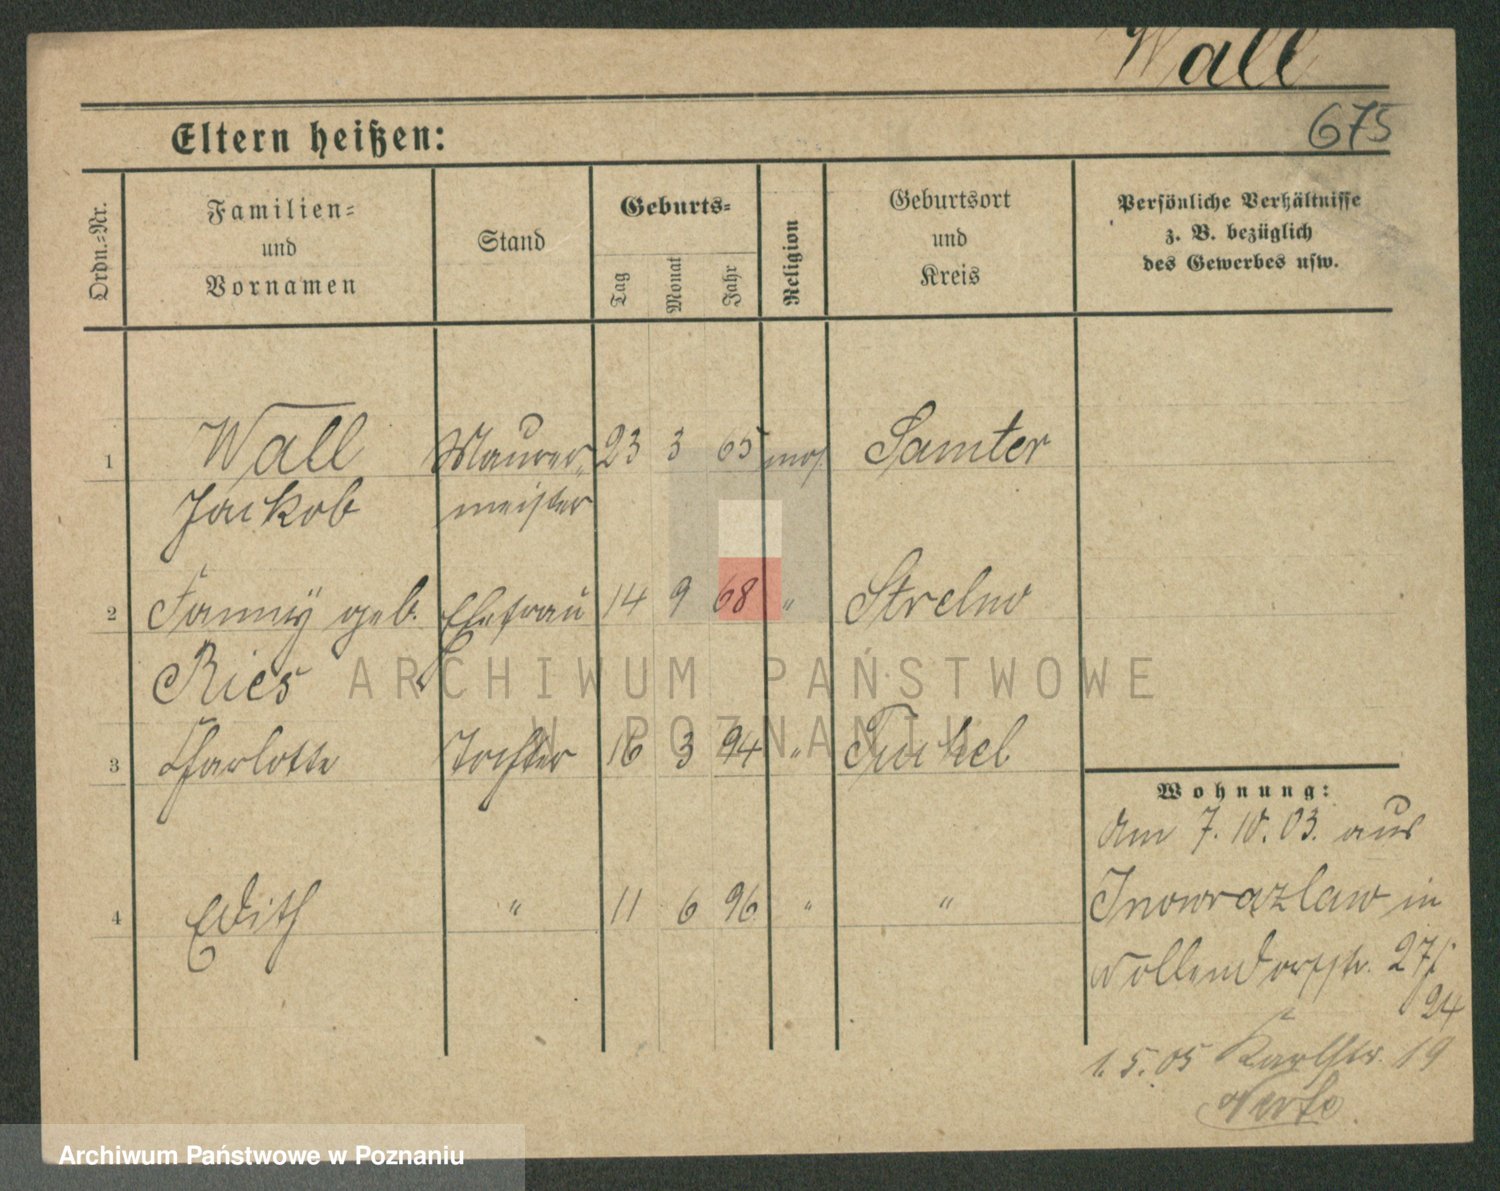 Wall
675
Eltern heißen:
Ordn.-Nr.
Familien-
und
Vornamen
Stand
Geburts-
Tag
Monat
Jahr
Religion
Geburtsort
und
Kreis
Persönliche Verhältnisse
z. B. bezüglich
des Gewerbes usw.
1 Wall Maurer- 23 3 65 mos. Samter
Jackob meister
2 Fanny geb. Ehefrau 14 9 68 " Strelno
Ries
ARCHIWUM PAŃSTWOWE
W POZNANIU
3 Charlotte Tochter 16 3 94 " Tuchel
4 Edith " 11 6 96 " "
Wohnung:
Am 7. 10. 03. aus
Inowrazlaw in
27/
24
1. 5. 05 Karlstr. 19
Archiwum Państwowe w Poznaniu